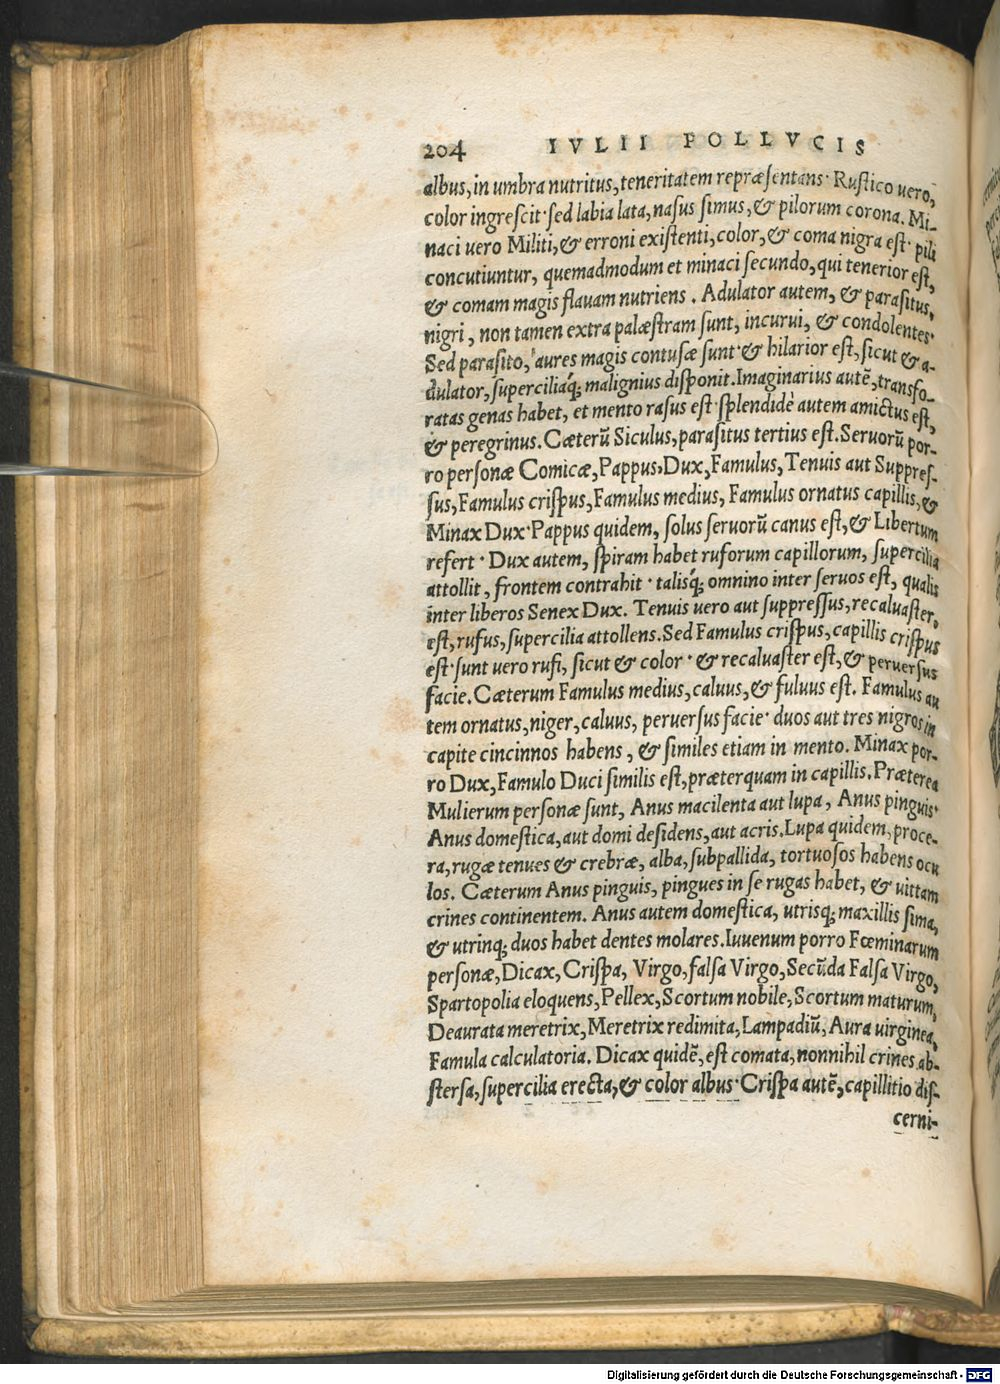 204 IVLII POLLVCIS
albus, in umbra nutritus, teneritatem repræsentans· Rustico uero,
color ingrescit· sed labia lata, nasus simus, & pilorum corona. Mi-
naci uero Militi, & erroni existenti, color, & coma nigra est· pili
concutiuntur, quemadmodum et minaci secundo, qui tenerior est,
& comam magis flauam nutriens. Adulator autem, & parasitus,
nigri, non tamen extra palæstram sunt, incurui, & condolentes·
Sed parasito, aures magis contusæ sunt· & hilarior est, sicut & a-
dulator, superciliáq; malignius disponit. Imaginarius autē, transfo-
ratas genas habet, et mento rasus est· splendidè autem amictus est,
& peregrinus. Cæterū Siculus, parasitus tertius est. Seruorū por-
ro personæ Comicæ, Pappus, Dux, Famulus, Tenuis aut Suppres-
sus, Famulus crispus, Famulus medius, Famulus ornatus capillis, &
Minax Dux· Pappus quidem, solus seruorū canus est, & Libertum
refert· Dux autem, spiram habet ruforum capillorum, supercilia
attollit, frontem contrahit· talisq́; omnino inter seruos est, qualis
inter liberos Senex Dux. Tenuis uero aut suppressus, recaluaster,
est, rufus, supercilia attollens. Sed Famulus crispus, capillis crispus
est· sunt uero rufi, sicut & color· & recaluaster est, & peruersus
facie. Cæterum Famulus medius, caluus, & fuluus est. Famulus au
tem ornatus, niger, caluus, peruersus facie· duos aut tres nigros in
capite cincinnos habens, & similes etiam in mento. Minax por-
ro Dux, Famulo Duci similis est, præterquam in capillis. Præterea
Mulierum personæ sunt, Anus macilenta aut lupa, Anus pinguis·
Anus domestica, aut domi desidens, aut acris. Lupa quidem, proce-
ra, rugæ tenues & crebræ, alba, subpallida, tortuosos habens ocu
los. Cæterum Anus pinguis, pingues in se rugas habet, & uittam
crines continentem. Anus autem domestica, utrisq; maxillis sima,
& utrinq; duos habet dentes molares. Iuuenum porro Fœminarum
personæ, Dicax, Crispa, Virgo, falsa Virgo, Secūda Falsa Virgo,
Spartopolia eloquens, Pellex, Scortum nobile, Scortum maturum,
Deaurata meretrix, Meretrix redimita, Lampadiū, Aura uirginea,
Famula calculatoria. Dicax quidē, est comata, nonnihil crines ab-
stersa, supercilia erecta, & color albus· Crispa autē, capillitio dis-
cerni-
Digitalisierung gefördert durch die Deutsche Forschungsgemeinschaft - DFG